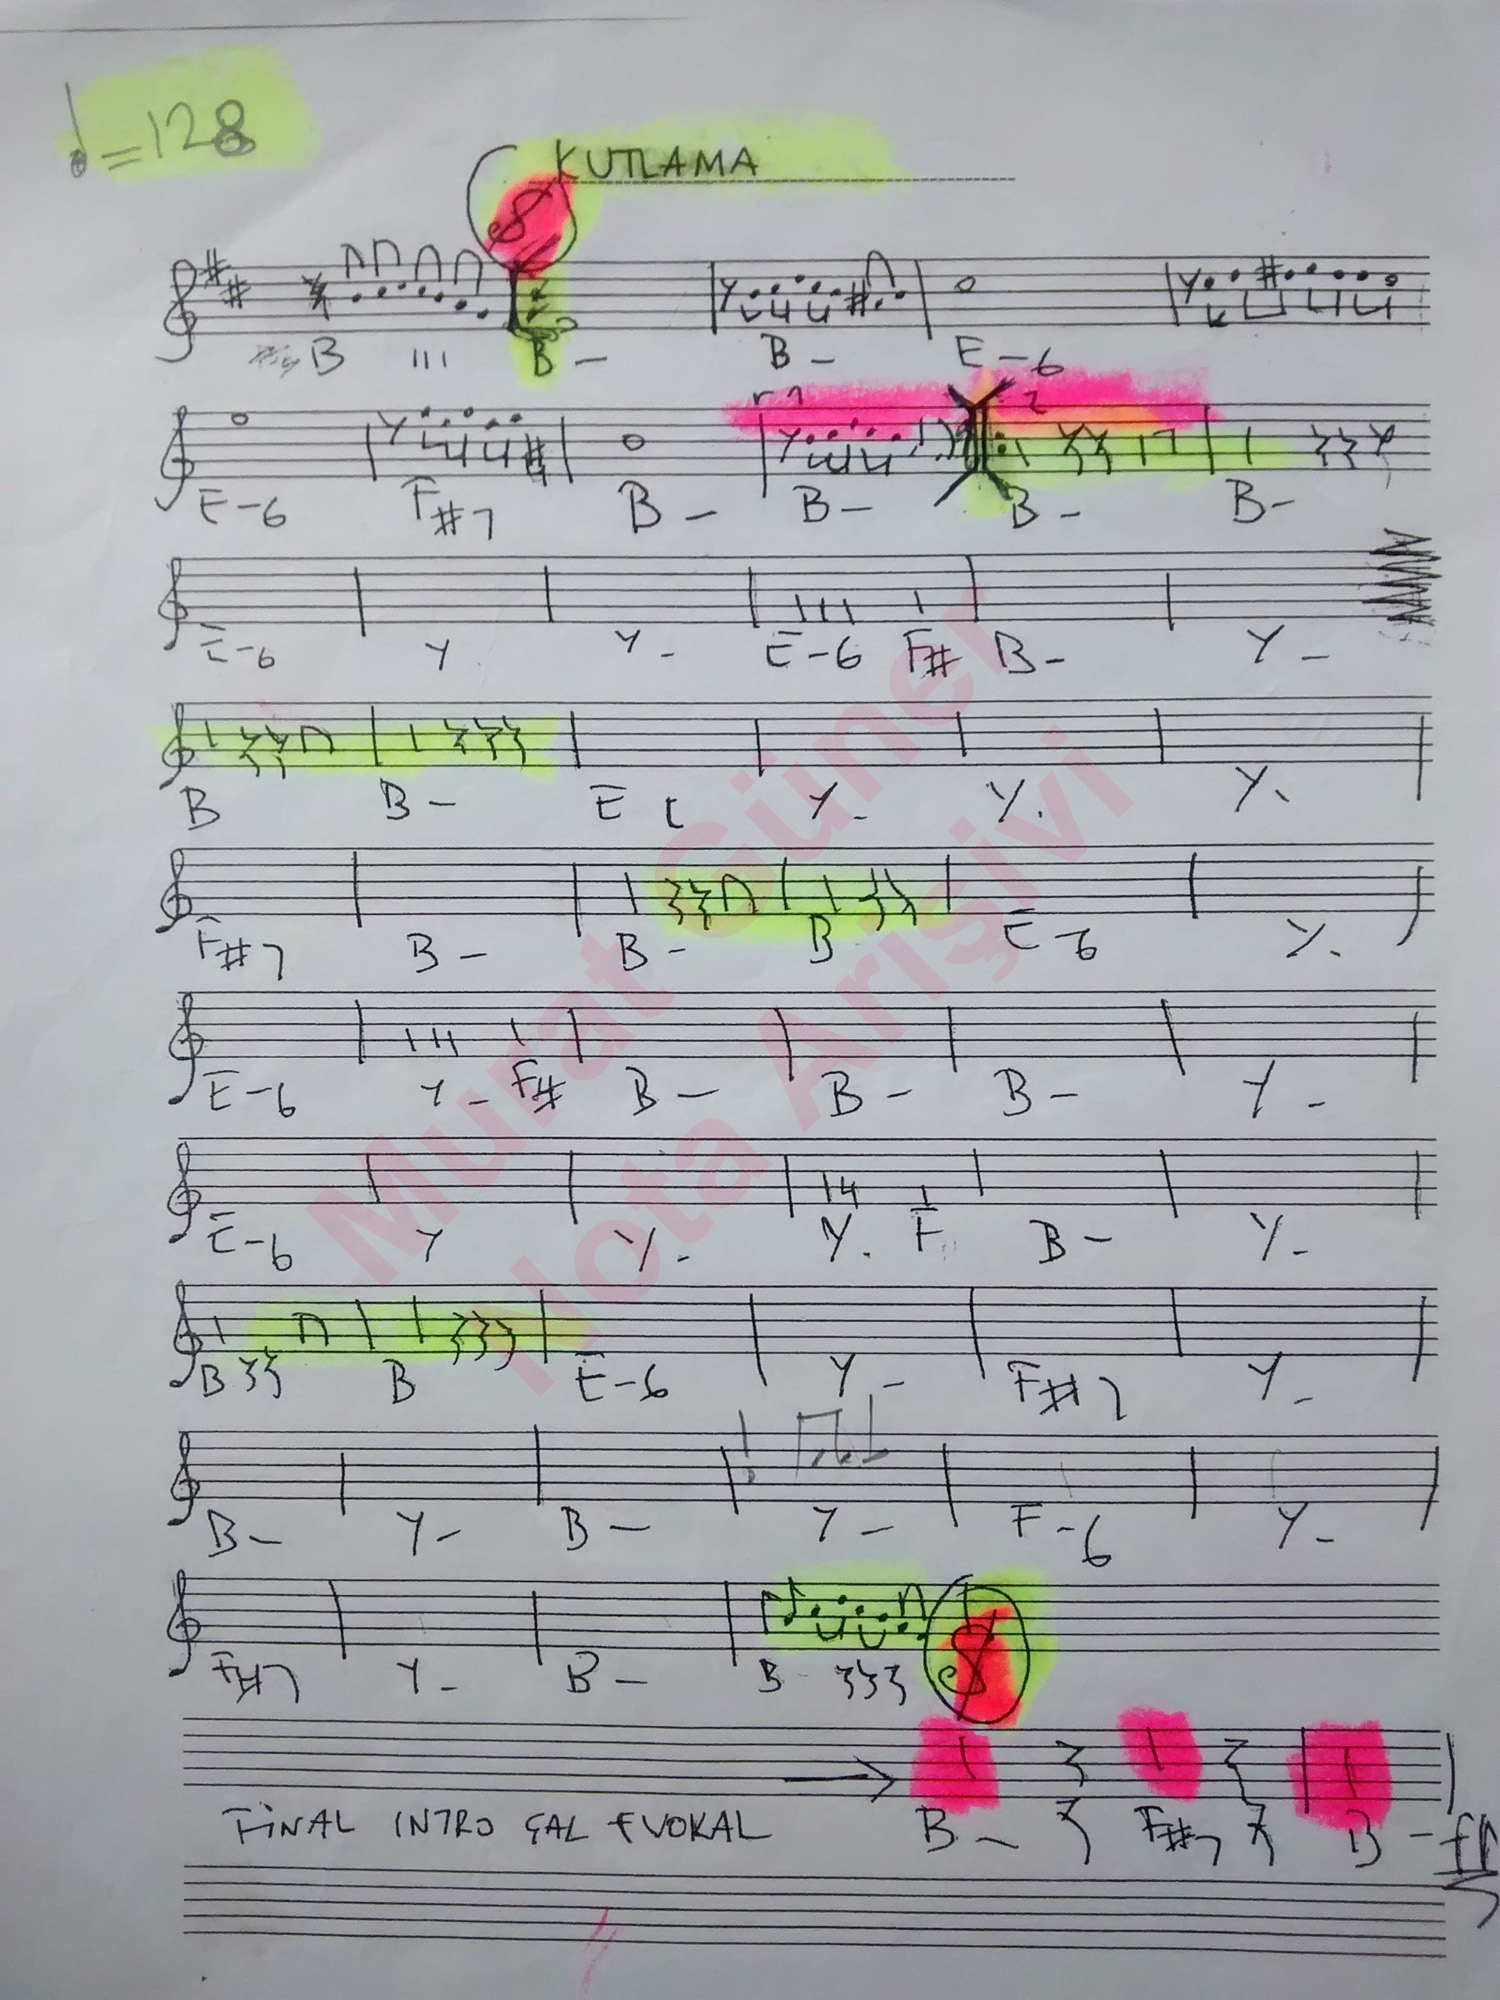 ♩=128
KUTLAMA
B B- B- E-6
E-6 F#7 B- B- B- B-
E-6 Y Y- E-6 F# B- Y-
B B- E Y- Y. Y.
F#7 B- B- B E-6 Y.
E-6 Y- F# B- B- B- Y-
E-6 Y Y- Y. F B- Y-
B B E-6 Y- F#7 Y-
B- Y- B- Y- F-6 Y-
F#7 Y- B- B-
FİNAL INTRO ÇAL B- F#7 B-
Murat Güner
Nota Arişivi